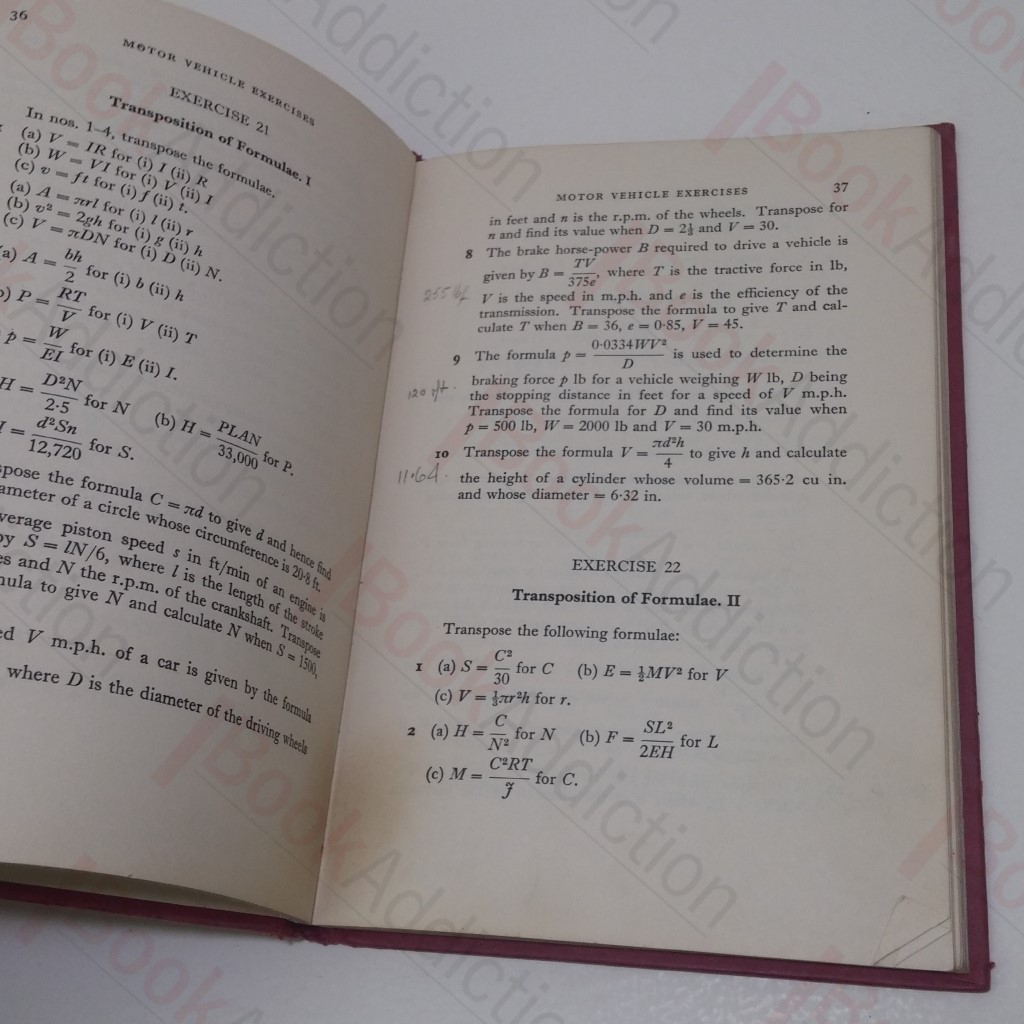 36
MOTOR VEHICLE EXERCISES
EXERCISE 21
Transposition of Formulae. I
In nos. 1–4, transpose the formulae.
(a) V = IR for (i) I (ii) R
(b) W = VI for (i) V (ii) I
(c) v = ft for (i) f (ii) t.
(a) A = πrl for (i) l (ii) r
(b) v² = 2gh for (i) g (ii) h
(c) V = πDN for (i) D (ii) N.
a) A = bh/2 for (i) b (ii) h
) P = RT/V for (i) V (ii) T
p = W/EI for (i) E (ii) I.
H = D²N/2·5 for N (b) H = PLAN/33,000 for P.
= d²Sn/12,720 for S.
spose the formula C = πd to give d and hence find
ameter of a circle whose circumference is 20·8 ft.
verage piston speed s in ft/min of an engine is
by S = lN/6, where l is the length of the stroke
es and N the r.p.m. of the crankshaft. Transpose
mula to give N and calculate N when S = 1500,
ed V m.p.h. of a car is given by the formula
where D is the diameter of the driving wheels
MOTOR VEHICLE EXERCISES 37
in feet and n is the r.p.m. of the wheels. Transpose for
n and find its value when D = 2⅓ and V = 30.
8 The brake horse-power B required to drive a vehicle is
given by B = TV/375e, where T is the tractive force in lb,
255 lbf
V is the speed in m.p.h. and e is the efficiency of the
transmission. Transpose the formula to give T and cal-
culate T when B = 36, e = 0·85, V = 45.
9 The formula p = 0·0334WV²/D is used to determine the
120 ft.
braking force p lb for a vehicle weighing W lb, D being
the stopping distance in feet for a speed of V m.p.h.
Transpose the formula for D and find its value when
p = 500 lb, W = 2000 lb and V = 30 m.p.h.
10 Transpose the formula V = πd²h/4 to give h and calculate
11·64.
the height of a cylinder whose volume = 365·2 cu in.
and whose diameter = 6·32 in.
EXERCISE 22
Transposition of Formulae. II
Transpose the following formulae:
1 (a) S = C²/30 for C (b) E = ½MV² for V
(c) V = ⅓πr²h for r.
2 (a) H = C/N² for N (b) F = SL²/2EH for L
(c) M = C²RT/J for C.
BookAddiction